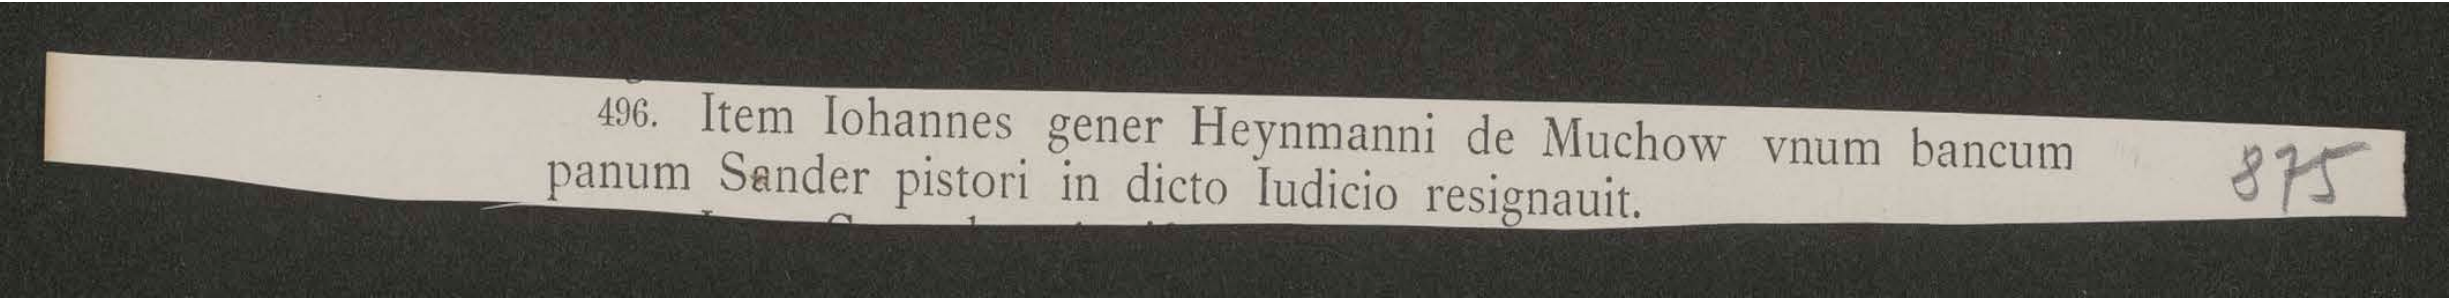 496. Item Iohannes gener Heynmanni de Muchow vnum bancum
panum Sander pistori in dicto Iudicio resignauit.
875